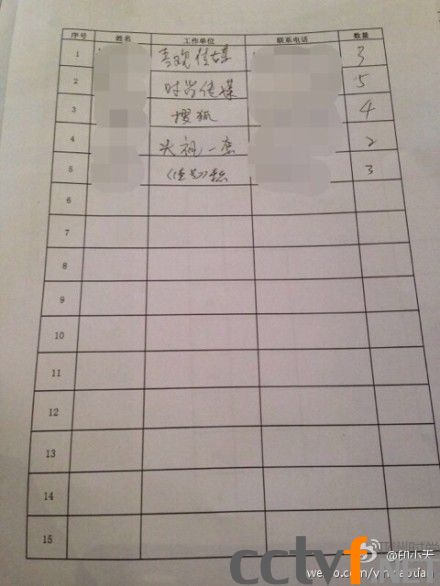 序号 姓名 工作单位 联系电话 数量
1 传媒 3
2 时尚传媒 5
3 搜狐 4
4 央视一套 2
5 3
6
7
8
9
10
11
12
13
14
15
@印小天
weibo.com/yinxiaotian
cctvf